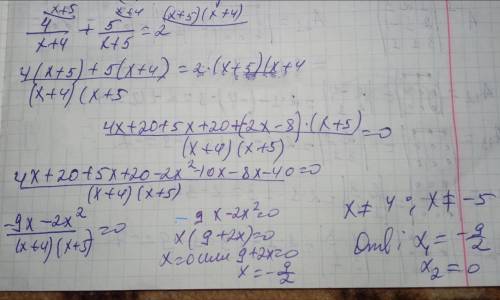 x+5 x+4 (x+5)(x+4)
4/(x+4) + 5/(x+5) = 2
(4(x+5)+5(x+4))/((x+4)(x+5) = 2·(x+5)(x+4
(4x+20+5x+20+(-2x-8)·(x+5))/((x+4)(x+5)) = 0
(4x+20+5x+20-2x²-10x-8x-40)/((x+4)(x+5)) = 0
(-9x-2x²)/((x+4)(x+5)) = 0
-9x-2x²=0
x(9+2x)=0
x=0 или 9+2x=0
x=-9/2
x≠ 4; x≠-5
Отв: x₁=-9/2
x₂=0